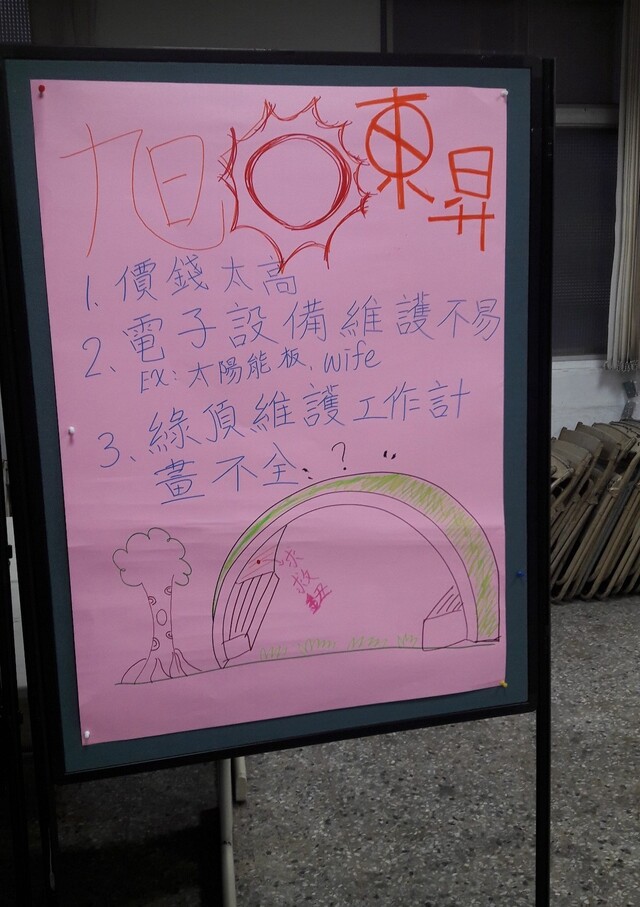 旭日東昇
1. 價錢太高
2、電子設備維護不易
EX：太陽能板、wife
3、綠頂維護工作計
畫不全
?
求救鈕